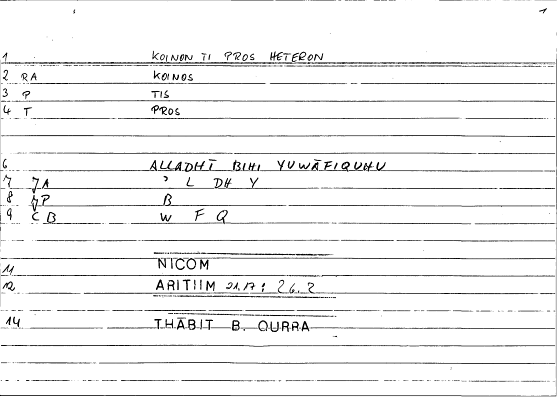 1
1 KOINON TI PROS HETERON
2 RA KOINOS
3 P TIS
4 T PROS
6 ALLADHĪ BIHI YUWĀFIQUHU
7 JA ʾ L DH Y
8 JP B
9 CB W F Q
11 NICOM
12 ARITIIM 21.17 : 26.2
14 THĀBIT B. QURRA